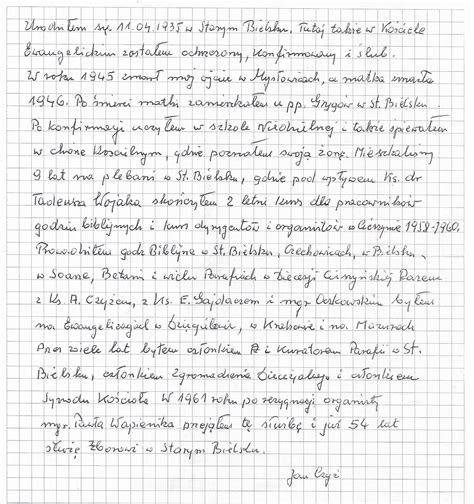 Urodziłem się 11.04.1935 w Starym Bielsku. Tutaj także w Kościele
Ewangelickim zostałem ochrzczony, konfirmowany i ślub.
W roku 1945 zmarł mój ojciec w Mysłowicach, a matka zmarła
1946. Po śmierci matki zamieszkałem u pp. Grygów w St. Bielsku.
Po konfirmacji uczyłem w szkole Niedzielnej i także śpiewałem
w chórze Kościelnym, gdzie poznałem swoją żonę. Mieszkaliśmy
9 lat na plebani w St. Bielsku, gdzie pod wpływem Ks. dr
Tadeusza Wojaka skończyłem 2 letni kurs dla pracowników
godzin biblijnych i kurs dyrygentów i organistów w Cieszynie 1958-1960.
Prowadziłem godz. Biblijne w St. Bielsku, Czechowicach, w Bielsku,
w Soarze, Betani i wielu Parafiach w Diecezji Cieszyńskiej Razem
z Ks. A. Czyżem, z Ks. E. Gajdaczem i mgr Oskowskim byłem
na Ewangelizacjach w Dzięgielowie, w Krakowie i na Mazurach
Przez wiele lat byłem członkiem R i Kuratorem Parafii w St.
Bielsku, członkiem Zgromadzenia Diecezjalnego i członkiem
Synodu Kościoła W 1961 roku po rezygnacji organisty
mgr. Pawła Wapienika przejąłem tę służbę i już 54 lat
służę Zborowi w Starym Bielsku.
Jan Czyż